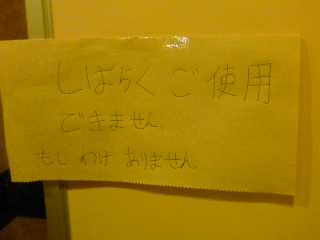 しばらくご使用
できません、
もしわけありません